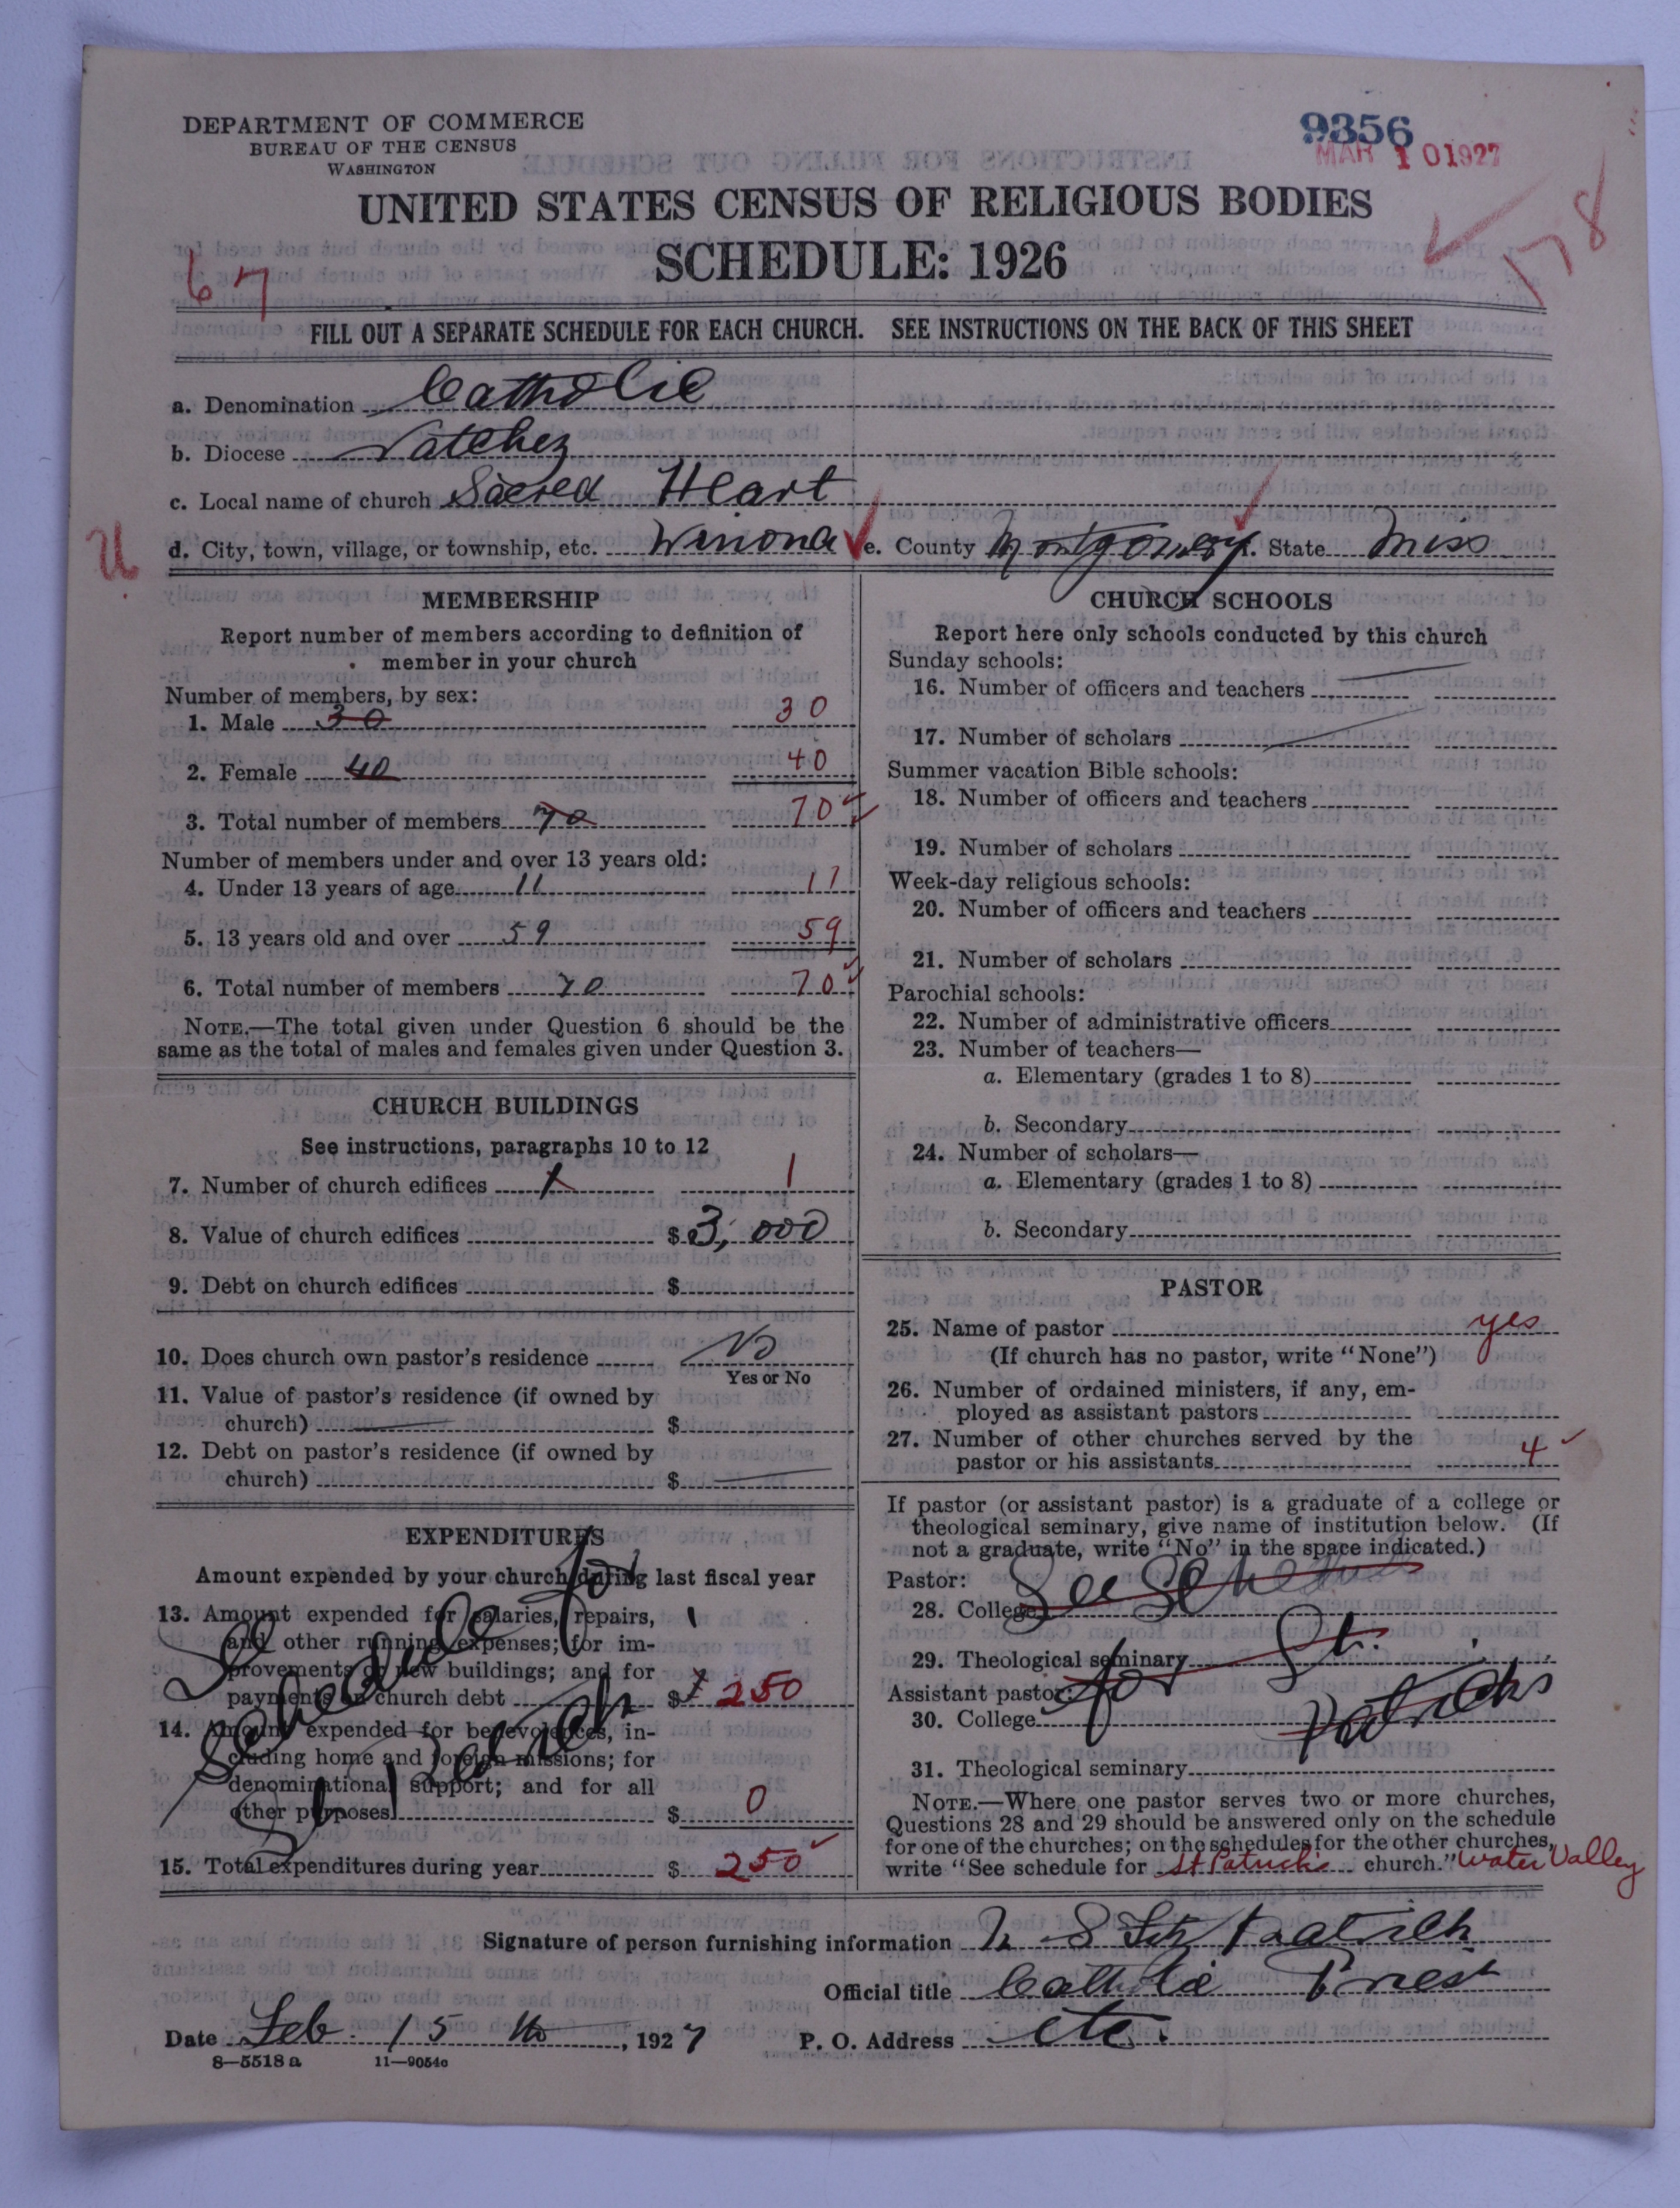 DEPARTMENT OF COMMERCE
BUREAU OF THE CENSUS
WASHINGTON
9356
MAR 10 1927
UNITED STATES CENSUS OF RELIGIOUS BODIES
SCHEDULE: 1926
67
178
FILL OUT A SEPARATE SCHEDULE FOR EACH CHURCH. SEE INSTRUCTIONS ON THE BACK OF THIS SHEET
a. Denomination Catholic
b. Diocese Natchez
c. Local name of church Sacred Heart
U
d. City, town, village, or township, etc. Winona e. County Montgomery f. State Miss
MEMBERSHIP
Report number of members according to definition of
member in your church
Number of members, by sex:
1. Male 30 30
2. Female 40 40
3. Total number of members 70 70
Number of members under and over 13 years old:
4. Under 13 years of age 11 11
5. 13 years old and over 59 59
6. Total number of members 70 70
NOTE.—The total given under Question 6 should be the
same as the total of males and females given under Question 3.
CHURCH BUILDINGS
See instructions, paragraphs 10 to 12
7. Number of church edifices 1 1
8. Value of church edifices $ 3,000
9. Debt on church edifices $
10. Does church own pastor's residence No
Yes or No
11. Value of pastor's residence (if owned by
church) $
12. Debt on pastor's residence (if owned by
church) $
EXPENDITURES
Amount expended by your church during last fiscal year
13. Amount expended for salaries, repairs,
and other running expenses; for im-
provements or new buildings; and for
payments on church debt $ 250
14. Amount expended for benevolences, in-
cluding home and foreign missions; for
denominational support; and for all
other purposes $ 0
See Schedule for St Patrick
15. Total expenditures during year $ 250
CHURCH SCHOOLS
Report here only schools conducted by this church
Sunday schools:
16. Number of officers and teachers
17. Number of scholars
Summer vacation Bible schools:
18. Number of officers and teachers
19. Number of scholars
Week-day religious schools:
20. Number of officers and teachers
21. Number of scholars
Parochial schools:
22. Number of administrative officers
23. Number of teachers—
a. Elementary (grades 1 to 8)
b. Secondary
24. Number of scholars—
a. Elementary (grades 1 to 8)
b. Secondary
PASTOR
25. Name of pastor yes
(If church has no pastor, write "None")
26. Number of ordained ministers, if any, em-
ployed as assistant pastors
27. Number of other churches served by the
pastor or his assistants 4
If pastor (or assistant pastor) is a graduate of a college or
theological seminary, give name of institution below. (If
not a graduate, write "No" in the space indicated.)
Pastor:
28. College See Schedule
29. Theological seminary for St.
Assistant pastor: Patricks
30. College
31. Theological seminary
NOTE.—Where one pastor serves two or more churches,
Questions 28 and 29 should be answered only on the schedule
for one of the churches; on the schedules for the other churches,
write "See schedule for St Patrick's church." Water Valley
Signature of person furnishing information Fitz Patrick
Official title Catholic Priest
Date Feb. 15 th, 1927 P. O. Address etc.
8—5518 a 11—9054c